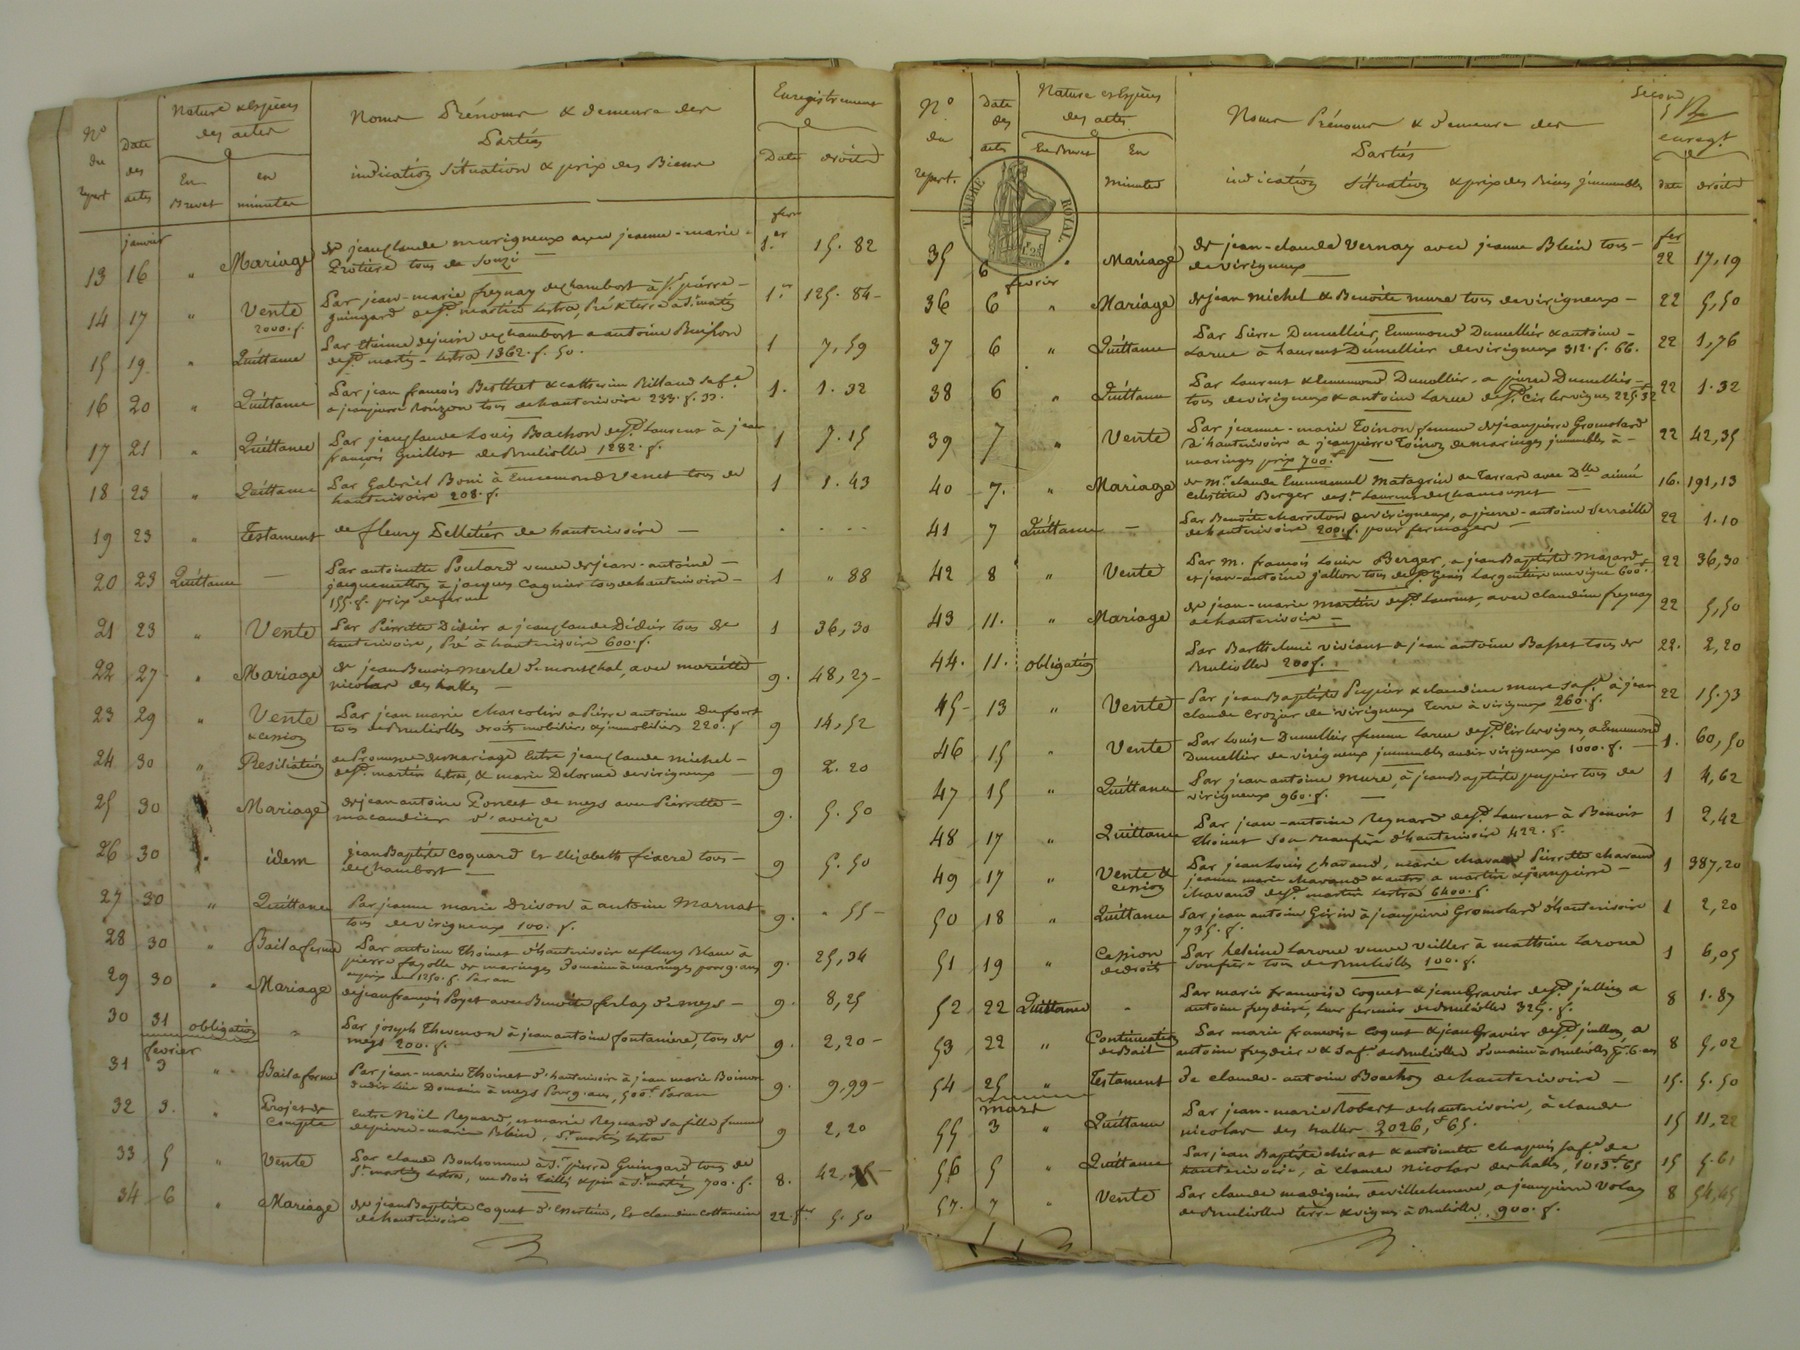 Nature & Espèces
des actes
Noms Prénoms & demeure des
Parties
indication situation & prix des Biens
Enregistrement
Date droits
N°
du
repert
Date
des
actes
En
Brevet
en
minutes
janvier
13 16 " Mariage de jean claude murigneux avec jeanne-marie-
tous de Souzi 1.er 15. 82
14 17 " Vente Par jean-marie freynay de chambost à St pierre-
2000. f. guingard de St martin Lestra, Pré & terre à St martin 1.er 125. 84-
15 19 " Quittance Par Etienne dejuin de chambost a antoine Buisson
de St martin-Lestra 1362. f. 50. 1 7,59
16 20 " Quittance Par jean françois Berthet & catherine Rilland sa fe
a jeanpierre Rouzon tous de hauterivoire 233. f. 33. 1. 1. 32
17 21 " Quittance Par jean claude Louis Bachon de St Laurent à jean
françois Guillot de Brullioles 1282. f. 1 7. 15
18 23 " Quittance Par Gabriel Boni à Ennemond Venet tous de
hauterivoire 208. f. 1 1. 43
19 23 " Testament de fleury Pelletier de hauterivoire — . . . .
20 23 Quittance — Par antoinette Poulard veuve de jean-antoine-
jacquemetton à jacques Cagnier tous de hauterivoire-
155. f. prix de ferme 1 " 88
21 23 " Vente Par Pierrette Didier a jean claude Didier tous de
hauterivoire, Pré à hauterivoire 600. f. 1 36,30
22 27 " Mariage de jean Benoit merle de montchal, avec mariette
nicolas des halles — 9. 48,27-
23 29 " Vente Par jean marie charcolin a Pierre antoine Dufourt
& cession tous de Brullioles droits mobiliers & immobiliers 220. f 9 14,52
24 30 " Resiliation de Promesse de mariage Entre jean claude michel-
de St martin Lestra, & marie Delorme de virigneux — 9 2. 20
25 30 Mariage de jean antoine Poncet de meys avec Pierrette-
macaudier d'aveize 9. 5. 50
26 30 " idem jean Baptiste Coquard et Elizabeth fiacre tous-
de chambost — 9 5. 50
27 30 " Quittance Par jeanne marie Drivon à antoine Marnat
tous de virigneux 100. f. 9. " 55-
28 30 " Bail a ferme Par antoine Thoinet d'hauterivoire & fleury Blanc à
pierre fayolle de maringes Domaine à maringes pour 9. ans
au prix de 1250. f. Par an 9. 25,34
29 30 " Mariage de jean françois Poyet avec Benoite ferlay de meys — 9. 8,25
30 31 obligation " Par joseph Thevenon à jean antoine fontaniere, tous de
meys 200. f. 9. 2,20-
fevrier
31 3 " Bail a ferme Par jean-marie Thoinet d'hauterivoire à jean marie Boinon
dudit lieu Domaine à meys Pour 9. ans, 500. f Par an 9. 9,99-
32 3. " Projet de Entre Noël Reynard, et marie Reynard sa fille femme
Compte de pierre-marie Blein, St martin Lestra 9 2,20
33 5 " Vente Par claude Bonhomme à St pierre Guingard tous de
St martin Lestra, un Bois taillis & pin à St martin, 700. f. 8. 42,
34 6 " Mariage de jean Baptiste Coquet d'Essertine, Et claudine Cottancin
de hauterivoire 22. fer 5. 50
N°
du
repert.
Date
des
acts
Nature & Espèces
des actes
En Brevet En
minutes
Noms Prénoms & demeure des
Parties
indication situation & prix des Biens immeubles
Second
enregt.
date droits
TIMBRE ROYAL
35 6 " Mariage de jean-claude Vernay avec jeanne Blein tous-
de virigneux fer 22 17,19
fevrier
36 6 " Mariage de jean michel & Benoite mure tous de virigneux — 22 5,50
37 6 " Quittance Par Pierre Dumellier, Ennemond Dumellier & antoine-
Larue à Laurent Dumellier de virigneux 312. f. 66. 22 1,76
38 6 " Quittance Par Laurent & Ennemond Dumellier, a pierre Dumellier-
tous de virigneux & antoine Larue de St Cir les vignes 225. f 32 22 1. 32
39 7 " Vente Par jeanne-marie Toinon femme de jeanpierre Gromolard
d'hauterivoire a jeanpierre Toinon de maringes immeubles à-
maringes prix 700. f — 22 42,35
40 7. " Mariage de Mr. claude Emmanuel Matagrin de Tarrare avec Dlle aimée
Celestine Berger de St Laurent de chamousset — 16. 191,13
41 7 Quittance — Par Benoite charreton de virigneux, a pierre-antoine Verraille
de hauterivoire 200. f. pour fermages — 22 1. 10
42 8 " Vente Par M. françois Louis Berger, a jean Baptiste Mazard
et jean-antoine jallon tous de St Genis Largentiere une vigne 600. f 22 36,30
43 11. " Mariage de jean-marie Martin de St Laurent, avec claudine freynay
de hauterivoire — 22 5,50
44. 11. obligation Par Barthelemi viviant & jean antoine Basset tous de
Brullioles 200 f. — 22. 2,20
45- 13 " Vente Par jean Baptiste Pupier & claudine mure sa fe à jean
claude Crozier de virigneux Terre à virigneux 260. f. 22 15. 73
46 15 " Vente Par Louise Dumellier femme Larue de St Cir les vignes, a Ennemond
Dumellier de virigneux immeubles audit virigneux 1000. f. — 1. 60,50
47 15 " Quittance Par jean antoine Mure, à jean Baptiste pupier tous de
virigneux 960. f. — 1 4,62
48 17 " Quittance Par jean-antoine Reynard de St Laurent à Benoit
Thoinet son beaufrère d'hauterivoire 422. f. 1 2,42
49 17 " Vente & Par jean Louis chavand, marie chavand Pierrette chavand
cession jeanne marie chavand & autres a martin & jeanpierre-
chavand de St martin Lestra 6400. f. 1 387,20
50 18 " Quittance Par jean antoine Girin à jeanpierre Gromolard d'hauterivoire
735. f. 1 2,20
51 19 " Cession Par Helaine Laroue veuve veiller à mathieu Laroue
de droits son frère tous de Brullioles 100. f. 1 6,05
52 22 Quittance " Par marie françoise Coquet & jean Gravier de St jullien a
antoine freydiere, leur fermier de Brullioles 325. f. 8 1. 87
53 22 " Continuation Par marie françoise Coquet & jean Gravier de St jullien, a
de Bail antoine freydiere & sa fe de Brullioles Domaine à Brullioles pr. 6. ans 8 5,02
54 25 " Testament de claude-antoine Boachon de hauterivoire — 15. 5. 50
mars
55 3 " Quittance Par jean-marie Robert de hauterivoire, à claude
nicolas des halles 2026, f 65. 15 11,22
56 5 " Quittance Par jean Baptiste chirat & antoinette chappuis sa fe de
hauterivoire, à claude Nicolas des halles, 1013. f 65 15 5. 61
57. 7 " Vente Par claude madignier de villechenève, a jeanpierre Volay
de Brullioles terre & vignes à Brullioles, 900. f. 8 54,45